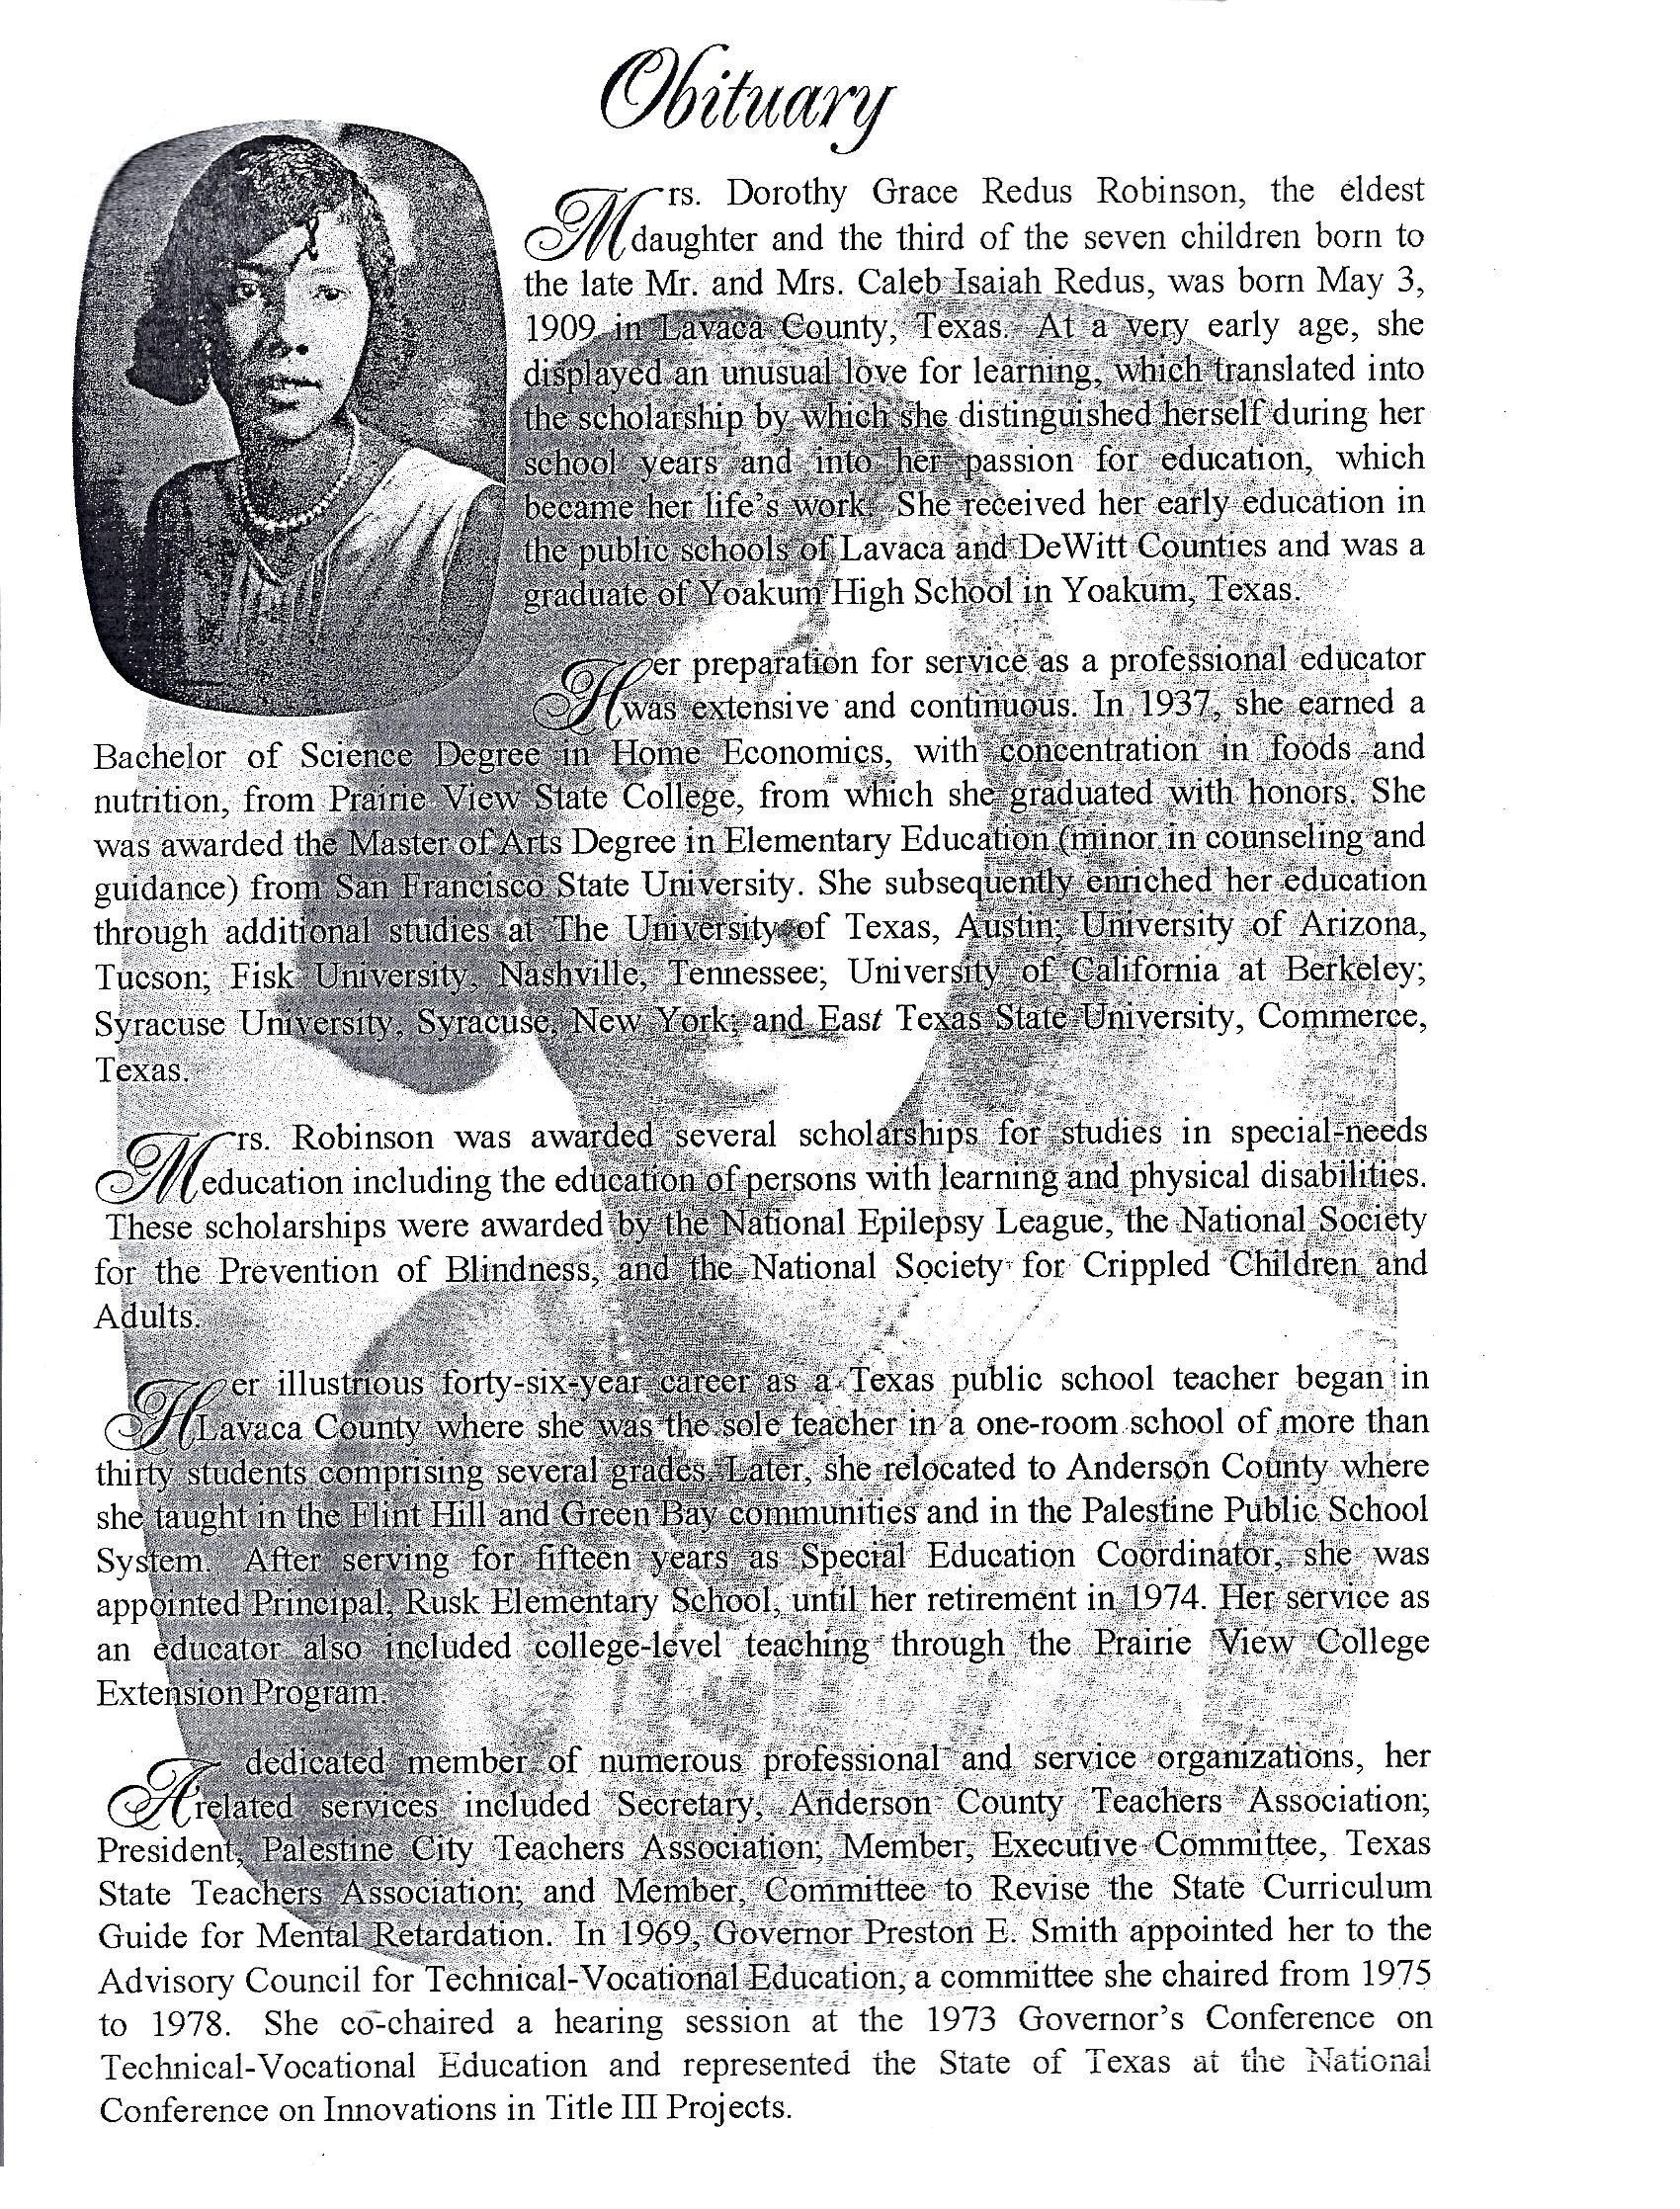 Obituary
Mrs. Dorothy Grace Redus Robinson, the eldest
daughter and the third of the seven children born to
the late Mr. and Mrs. Caleb Isaiah Redus, was born May 3,
1909 in Lavaca County, Texas. At a very early age, she
displayed an unusual love for learning, which translated into
the scholarship by which she distinguished herself during her
school years and into her passion for education, which
became her life's work. She received her early education in
the public schools of Lavaca and DeWitt Counties and was a
graduate of Yoakum High School in Yoakum, Texas.
Her preparation for service as a professional educator
was extensive and continuous. In 1937, she earned a
Bachelor of Science Degree in Home Economics, with concentration in foods and
nutrition, from Prairie View State College, from which she graduated with honors. She
was awarded the Master of Arts Degree in Elementary Education (minor in counseling and
guidance) from San Francisco State University. She subsequently enriched her education
through additional studies at The University of Texas, Austin; University of Arizona,
Tucson; Fisk University, Nashville, Tennessee; University of California at Berkeley;
Syracuse University, Syracuse, New York; and East Texas State University, Commerce,
Texas.
Mrs. Robinson was awarded several scholarships for studies in special-needs
education including the education of persons with learning and physical disabilities.
These scholarships were awarded by the National Epilepsy League, the National Society
for the Prevention of Blindness, and the National Society for Crippled Children and
Adults.
Her illustrious forty-six-year career as a Texas public school teacher began in
Lavaca County where she was the sole teacher in a one-room school of more than
thirty students comprising several grades. Later, she relocated to Anderson County where
she taught in the Flint Hill and Green Bay communities and in the Palestine Public School
System. After serving for fifteen years as Special Education Coordinator, she was
appointed Principal, Rusk Elementary School, until her retirement in 1974. Her service as
an educator also included college-level teaching through the Prairie View College
Extension Program.
A dedicated member of numerous professional and service organizations, her
related services included Secretary, Anderson County Teachers Association;
President, Palestine City Teachers Association; Member, Executive Committee, Texas
State Teachers Association; and Member, Committee to Revise the State Curriculum
Guide for Mental Retardation. In 1969, Governor Preston E. Smith appointed her to the
Advisory Council for Technical-Vocational Education, a committee she chaired from 1975
to 1978. She co-chaired a hearing session at the 1973 Governor's Conference on
Technical-Vocational Education and represented the State of Texas at the National
Conference on Innovations in Title III Projects.